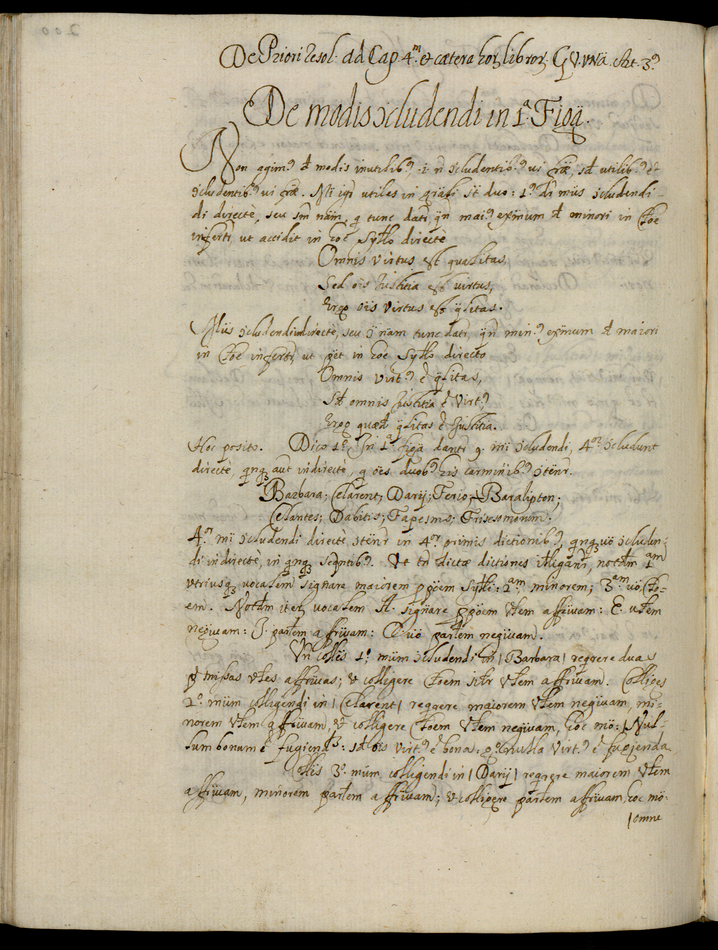 De Priori Resol. ad Cap 4.m & cætera hor. libror. Q. V.
De modis ɔcludendi in 1ª Figª.
Non agim9 de modis inutilib9 .i. ñ ɔcludentib9 vi , sed utilib9 &
ɔcludentib9 vi . igr utiles in st duo: 1us mus ɔcludendi
di directè, seu nãm, q tunc datr, qñ mai9 exmum de minori in
infertr, ut accidit in hoc Syllo directè
Omnis virtus est qualitas,
Sed ois Justitia est virtus,
Ergo ois virtus est qlitas.
Aliis ɔcludendi indirectè, seu nam tunc datr, qñ min9 exmum de maiori
in infertr, ut in hoc Syllo directo
Omnis virt9 ẽ qlitas,
Sed omnis Justitia ẽ Virt9,
Ergo quæd qlitas ẽ Justitia.
Hoc posito. Dico 1º. In 1ª figª dantr 9. mi ɔcludendi, 4or ɔcludunt
directè, qnq aut indirectè, q oes duob9 his carminib9 ɔtẽnr.
Barbara; Celarent; Darij; Ferio; Baralipton;
Celantes; Dabitis; Fapesmo; Frisesomorum;
4or mi ɔcludendi directè, ɔtẽnr in 4or primis dictionib9, qnq uò ɔcluden-
di indirectè, in qnq seqntib9. Ut tñ dictæ dictiones itligantr, notdm 1am
utriusq vocalem signare maiorem ppoem Sylli: 2am minorem; 3am uò
em. Notdm iter vocalem A. signare ppoem vlem affirvam: E. vlem
negvam: I. partem affirvam: O. uò partem negvam.
Vñ collis 1º. mum ɔcludendi in | Barbara | reqrere duas
p missas vles affirvas; & colligere vlem affirvam. Colliges
2º. mum colligendi in | Celarent | reqrere maiorem vlem negvam, mi-
norem vlem affirvam, & colligere vlem negvam, hoc mo: | Nul-
lum bonum ẽ fugiend: sed ois virt9 ẽ bona, nulla virt9 ẽ fugienda
Collis 3º. mum colligendi in | Darij | reqrere maiorem vlem
affirvam, minorem partem affirvam; & colligere partem affirvam hoc mo.
| omne